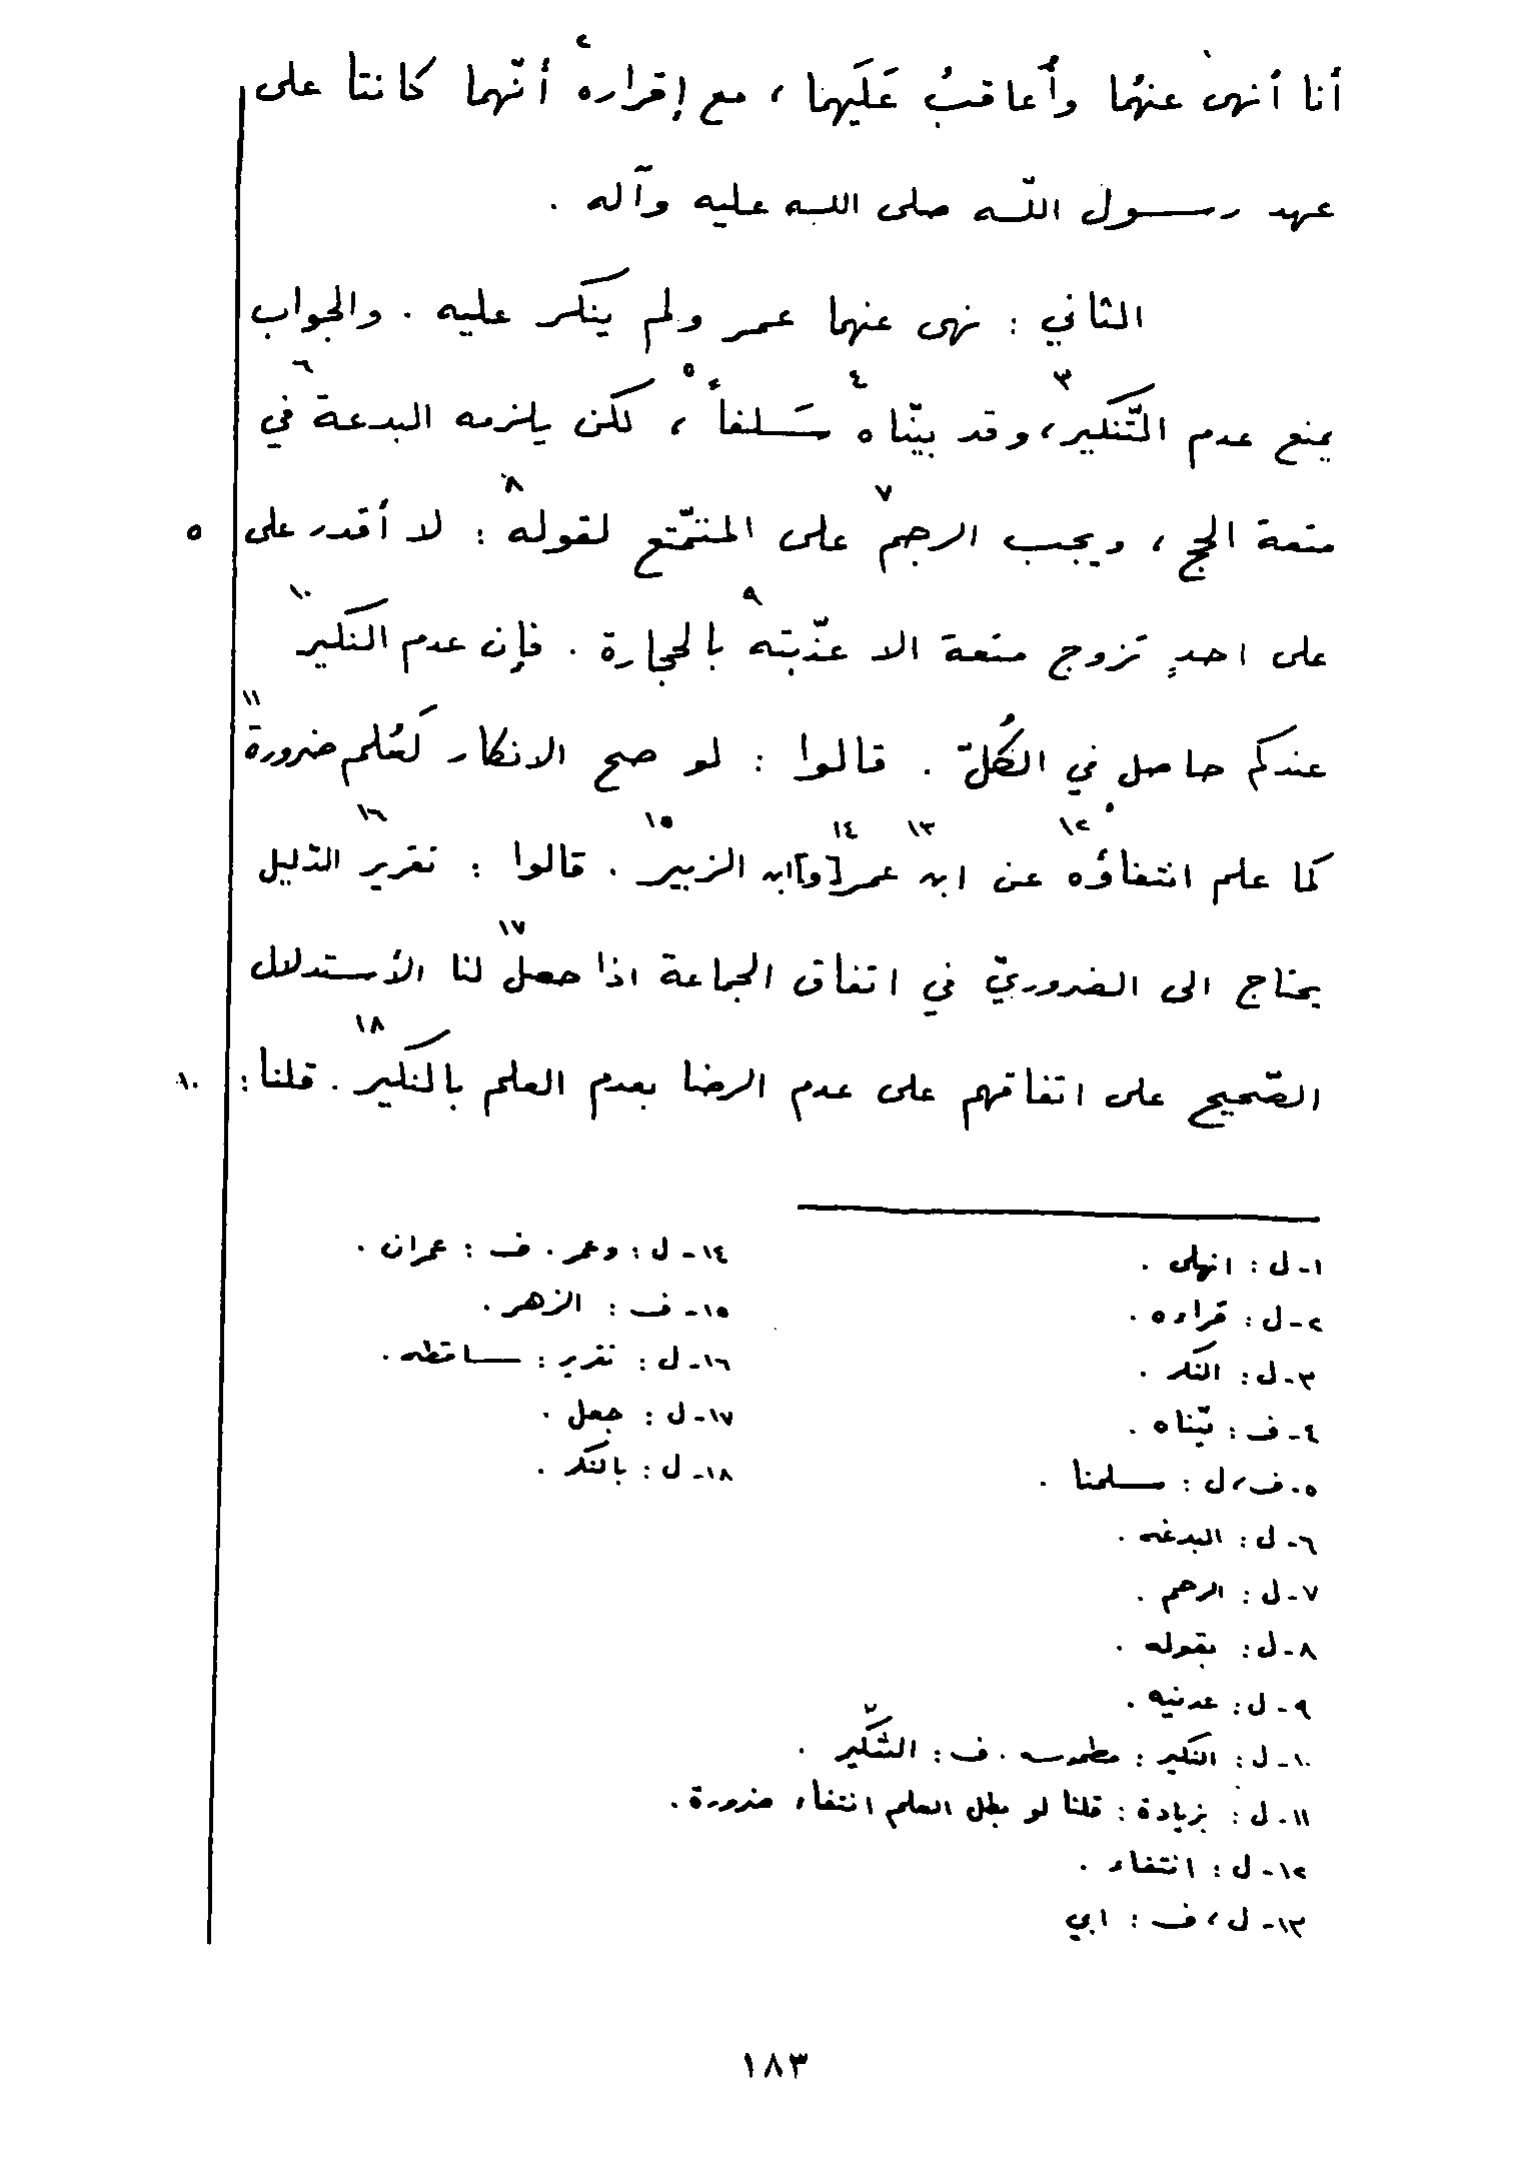 أنا أنهى١ عنهُما وأُعاقبُ عَلَيهما ، مع إقراره٢ أنّهما كانتا على
عهد رسول اللّه صلى الله عليه وآله .
الثاني : نهى عنهما عمر ولم ينكر عليه . والجواب
يمنع عدم التّنكير٣، وقد بيّناه٤ سَلفاً٥ ، لكن يلزمه البدعة٦ في
متعة الحج ، ويجب الرجم٧ على المتمّتع لقوله٨ : لا أقدر على ٥
على احدٍ تزوج متعة الا عذّبته٩ بالحجارة . فإن عدم النكير١٠
عندكم حاصل في الكُلّ . قالوا : لو صح الانكار لَعُلم ضرورة١١
كما علم انتفاؤه١٢ عن ابن١٣ عمر١٤ [و]ابن الزبير١٥ . قالوا : تقرير١٦ الدّليل
يحتاج الى الضروريّ في اتفاق الجماعة اذا حصل١٧ لنا الأستدلال
الصّحيح على اتفاقهم على عدم الرضا بعدم العلم بالنكير١٨ . قلنا : ١٠
١- ل : انهلى .
٢- ل : قراءه .
٣- ل : النكر .
٤- ف : تيّناه .
٥- ف، ل : سلمنا .
٦- ل : البدغه .
٧- ل : الرحم .
٨- ل : بقوله .
٩- ل : عدنيه .
١٠- ل : النكير : مطموسه . ف : التّكير .
١١- ل : بزيادة : قلنا لو بطل العلم انتفاء ضرورة .
١٢- ل : انتفاء .
١٣- ل، ف : ابي
١٤- ل : وعمر . ف : عمران .
١٥- ف : الزهر .
١٦- ل : تقرير : ساقطه .
١٧- ل : جعل .
١٨- ل : بالنكر .
١٨٣